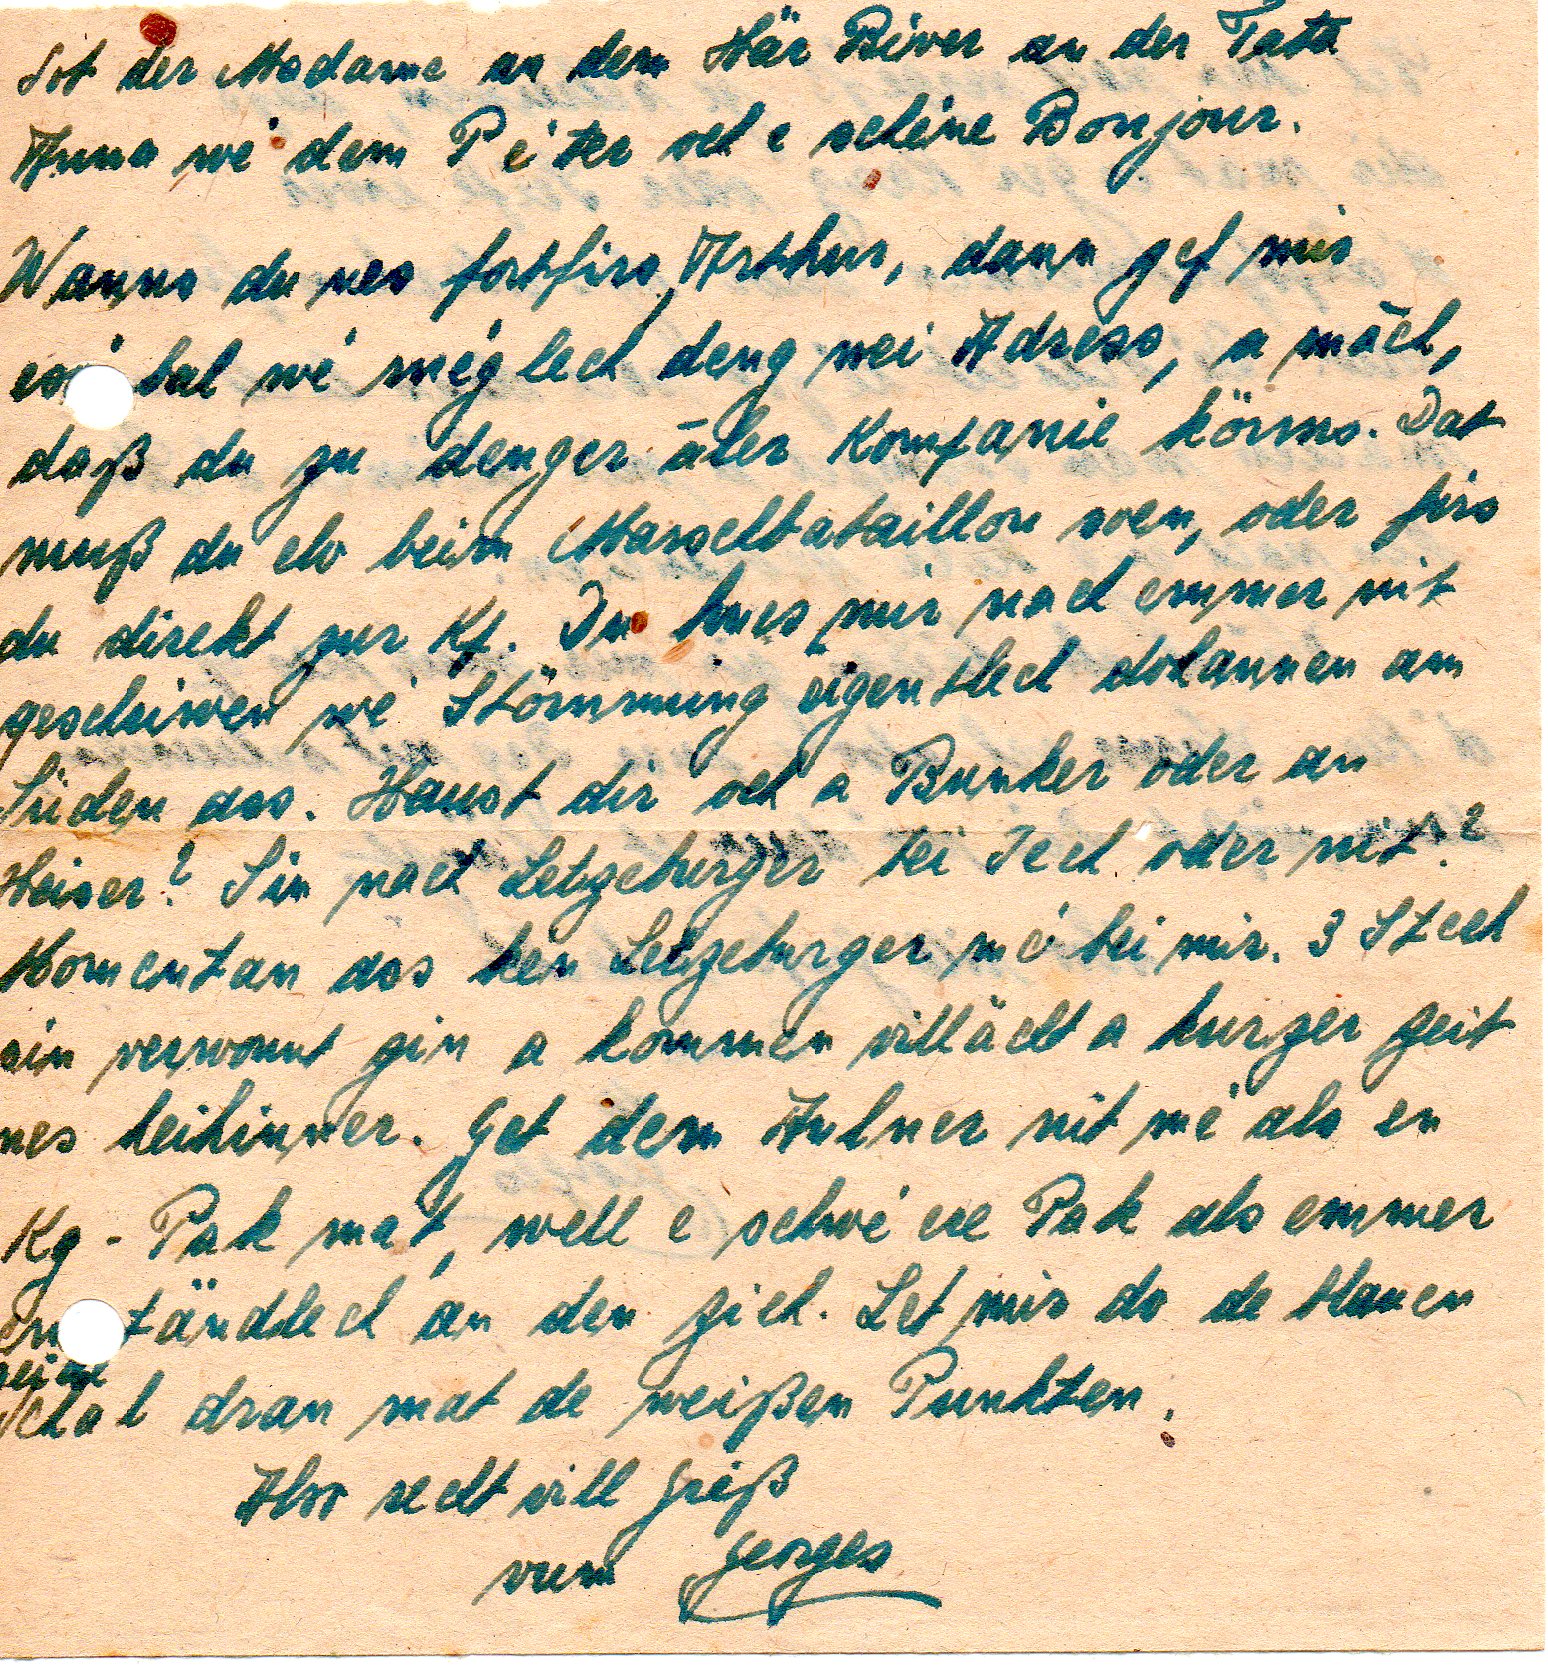 Sot der Madame an dem Här Biver an der Tatta
Anna wé dem Péter och e schéne Bonjour.
Wanns du nes fortfirs, Arthur, dann gef mir
esó bal wé méglech deng nei Adress, a mäch,
daß du zu denger äler Kompanie könns. Dat
muß du elo beim Marschbataillon soen, oder firs
du direkt zur Kp. Du hues mir nach emmer nit
geschriwen wé Stömmung eigentlech dohannen am
Süden ass. Haust dir och a Bunker oder an
Heiser? Sin nach Letzeburger bei Iech oder nit?
Momentan ass ken Letzeburger mé bei mir. 3 Steck
sin verwonnt gin a kommen villächt a kurzer Zeit
nes heihinner. Get dem Aulner nit mé als en
Kg-Pak mat, well e schwéere Pak als emmer
ständlech an den Zich. Let mir do de blauen
seide
Schal dran mat de weißen Punkten.
Also recht vill Gréiß
vum Georges